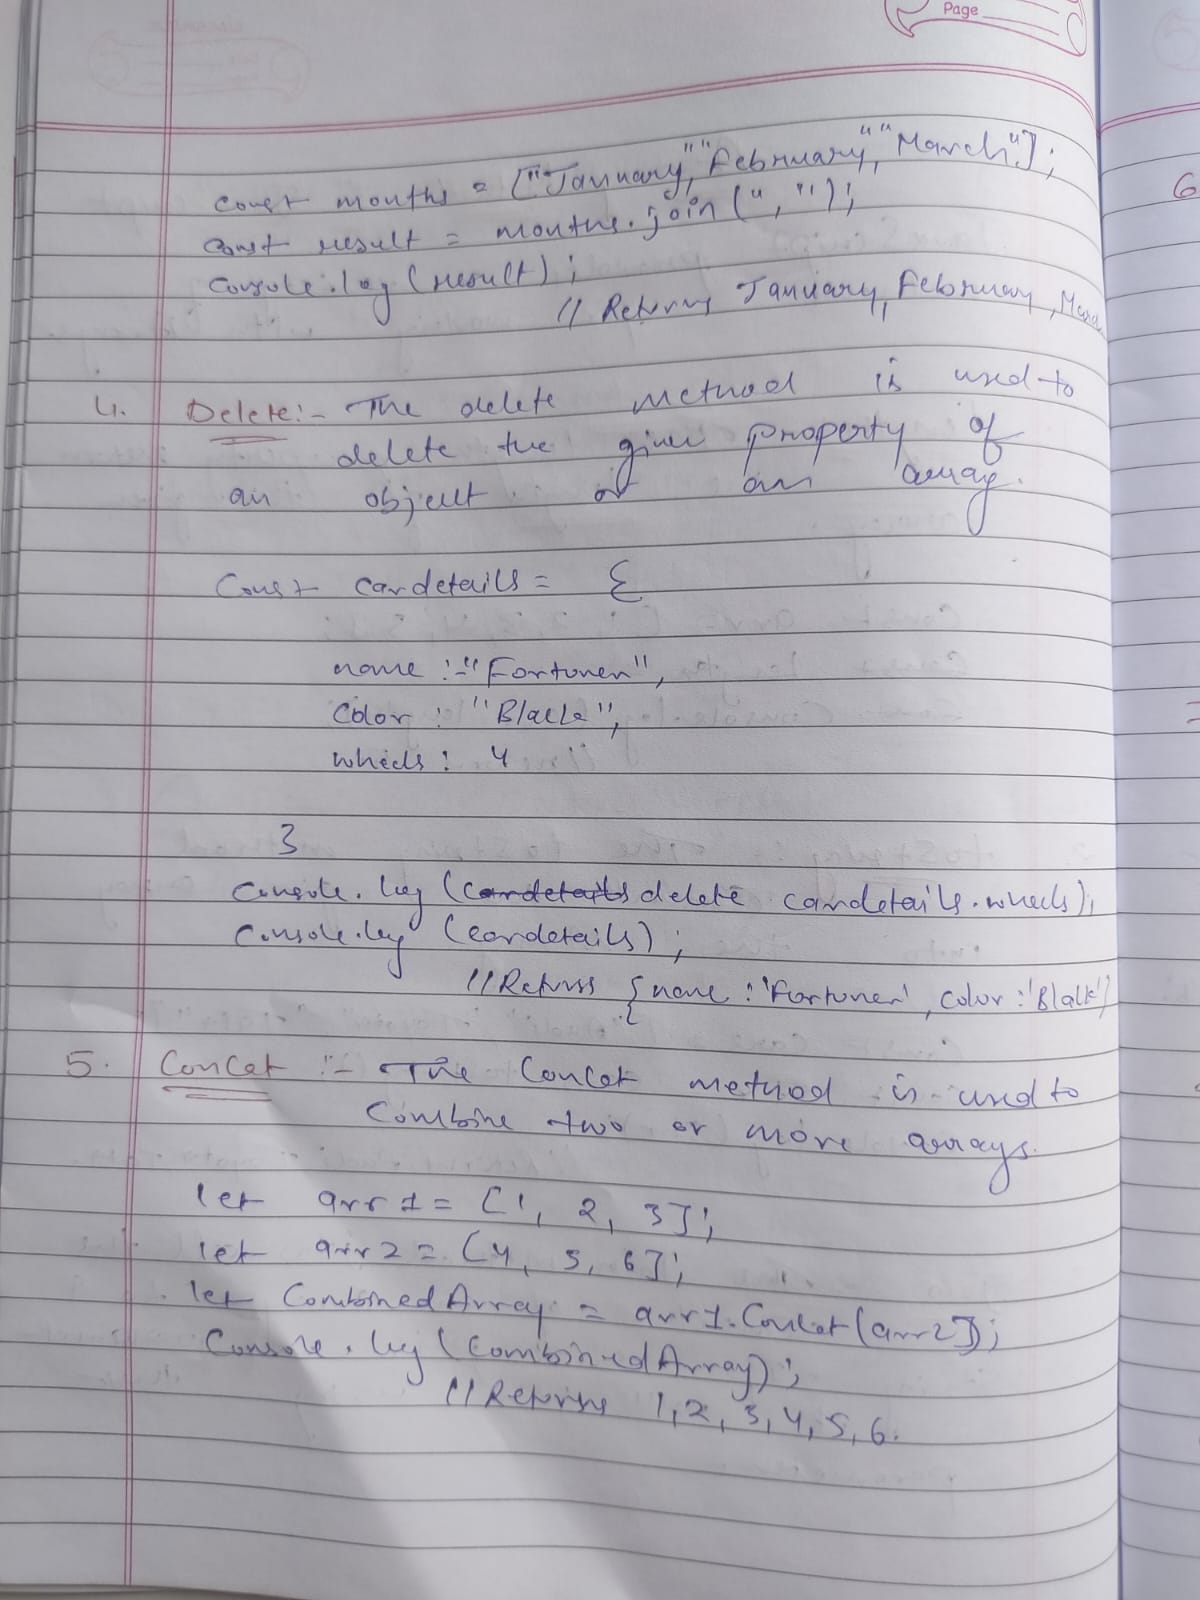 Page
const months = ["January", "February", "March"];
const result = months.join(", ");
Console.log (result);
// Returns January, February, March
4. Delete :- The delete method is used to
delete the given property of
an object or an array.
Const cardetails = {
name :- "Fortuner",
Color : "Black",
wheels : 4
}
Console.log (cardetails delete cardetails.wheels);
Console.log (cardetails);
// Returns {name : 'Fortuner', color : 'Black'}
5. Concat :- The Concat method is used to
Combine two or more arrays.
let arr1 = [1, 2, 3];
let arr2 = [4, 5, 6];
let CombinedArray = arr1.Concat(arr2]);
Console.log (CombinedArray);
// Returns 1, 2, 3, 4, 5, 6.
6